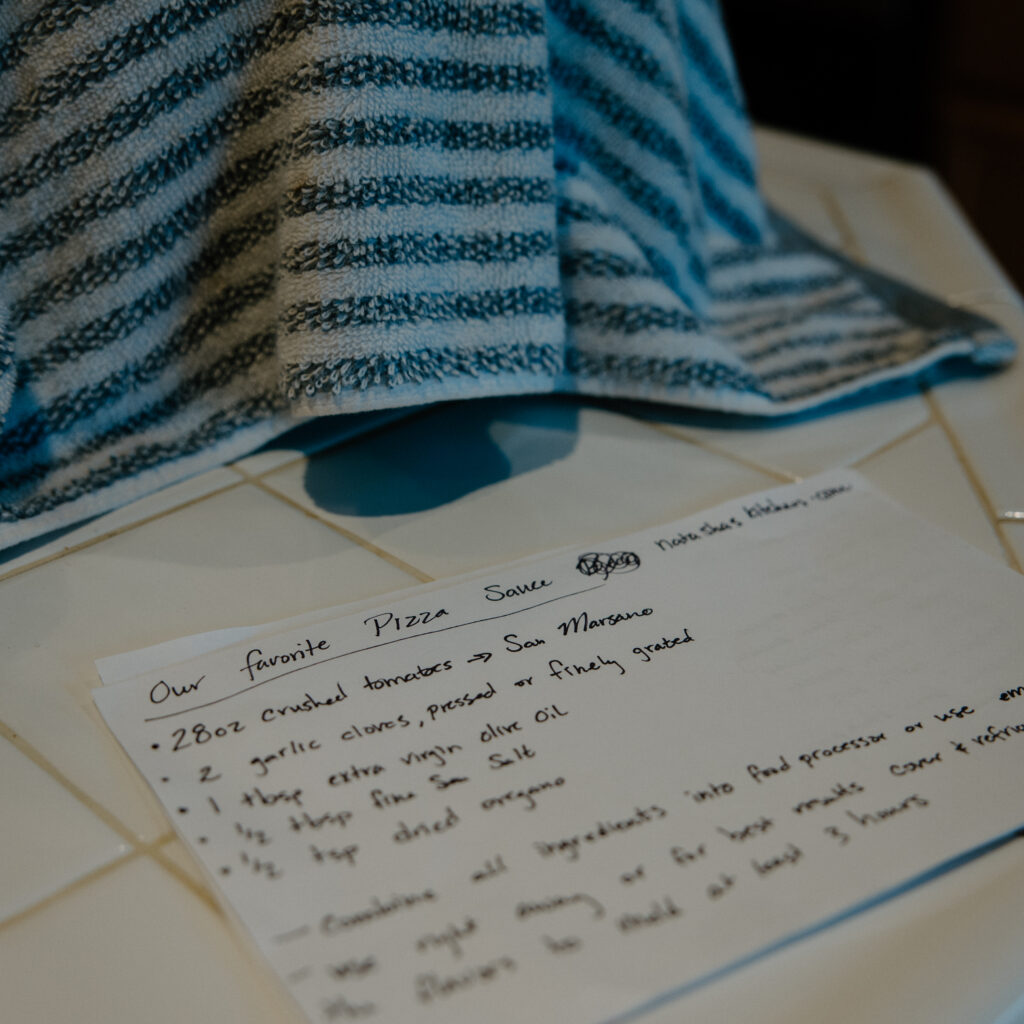 Our favorite Pizza Sauce natashaskitchen.com
• 28oz crushed tomatoes → San Marsano
• 2 garlic cloves, pressed or finely grated
• 1 tbsp extra virgin olive oil
• 1/2 tbsp fine Sea Salt
• 1/2 tsp dried oregano
— Combine all ingredients into food processor or use
— use right away or for best results cover &
flavors to meld at least 3 hours